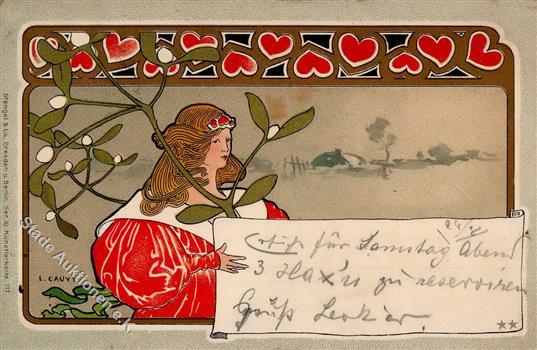 Stengel & Co., Dresden u. Berlin. Ser. 10. Künstlerkarte. 117
L. CAUV
für Samstag Abend
3 Hax'n zu reserviren
Gruß
Stade Auktionen e.K.